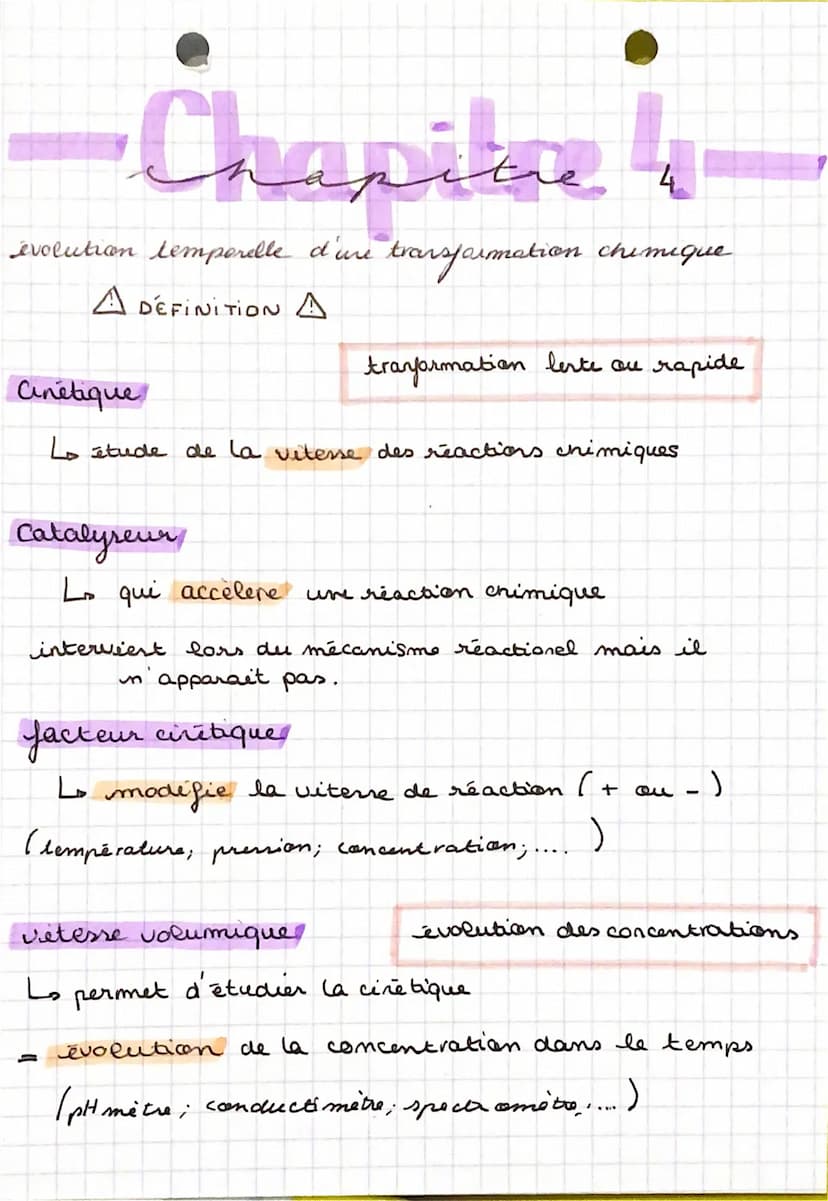 Chapitre 4
chapitre 4
évolution temporelle d'une transformation chimique
⚠ DÉFINITION ⚠
tranformation lente ou rapide
Cinétique
↳ étude de la vitesse des réactions chimiques
Catalyseur
↳ qui accélère une réaction chimique
intervient lors du mécanisme réactionel mais il
n'apparait pas.
facteur cinétique
↳ modifie la vitesse de réaction (+ ou -)
(température; pression; concentration;....)
vitesse volumique
évolution des concentrations
↳ permet d'étudier la cinétique
= évolution de la concentration dans le temps
(pH mètre; conductimètre; spectromètre;....)